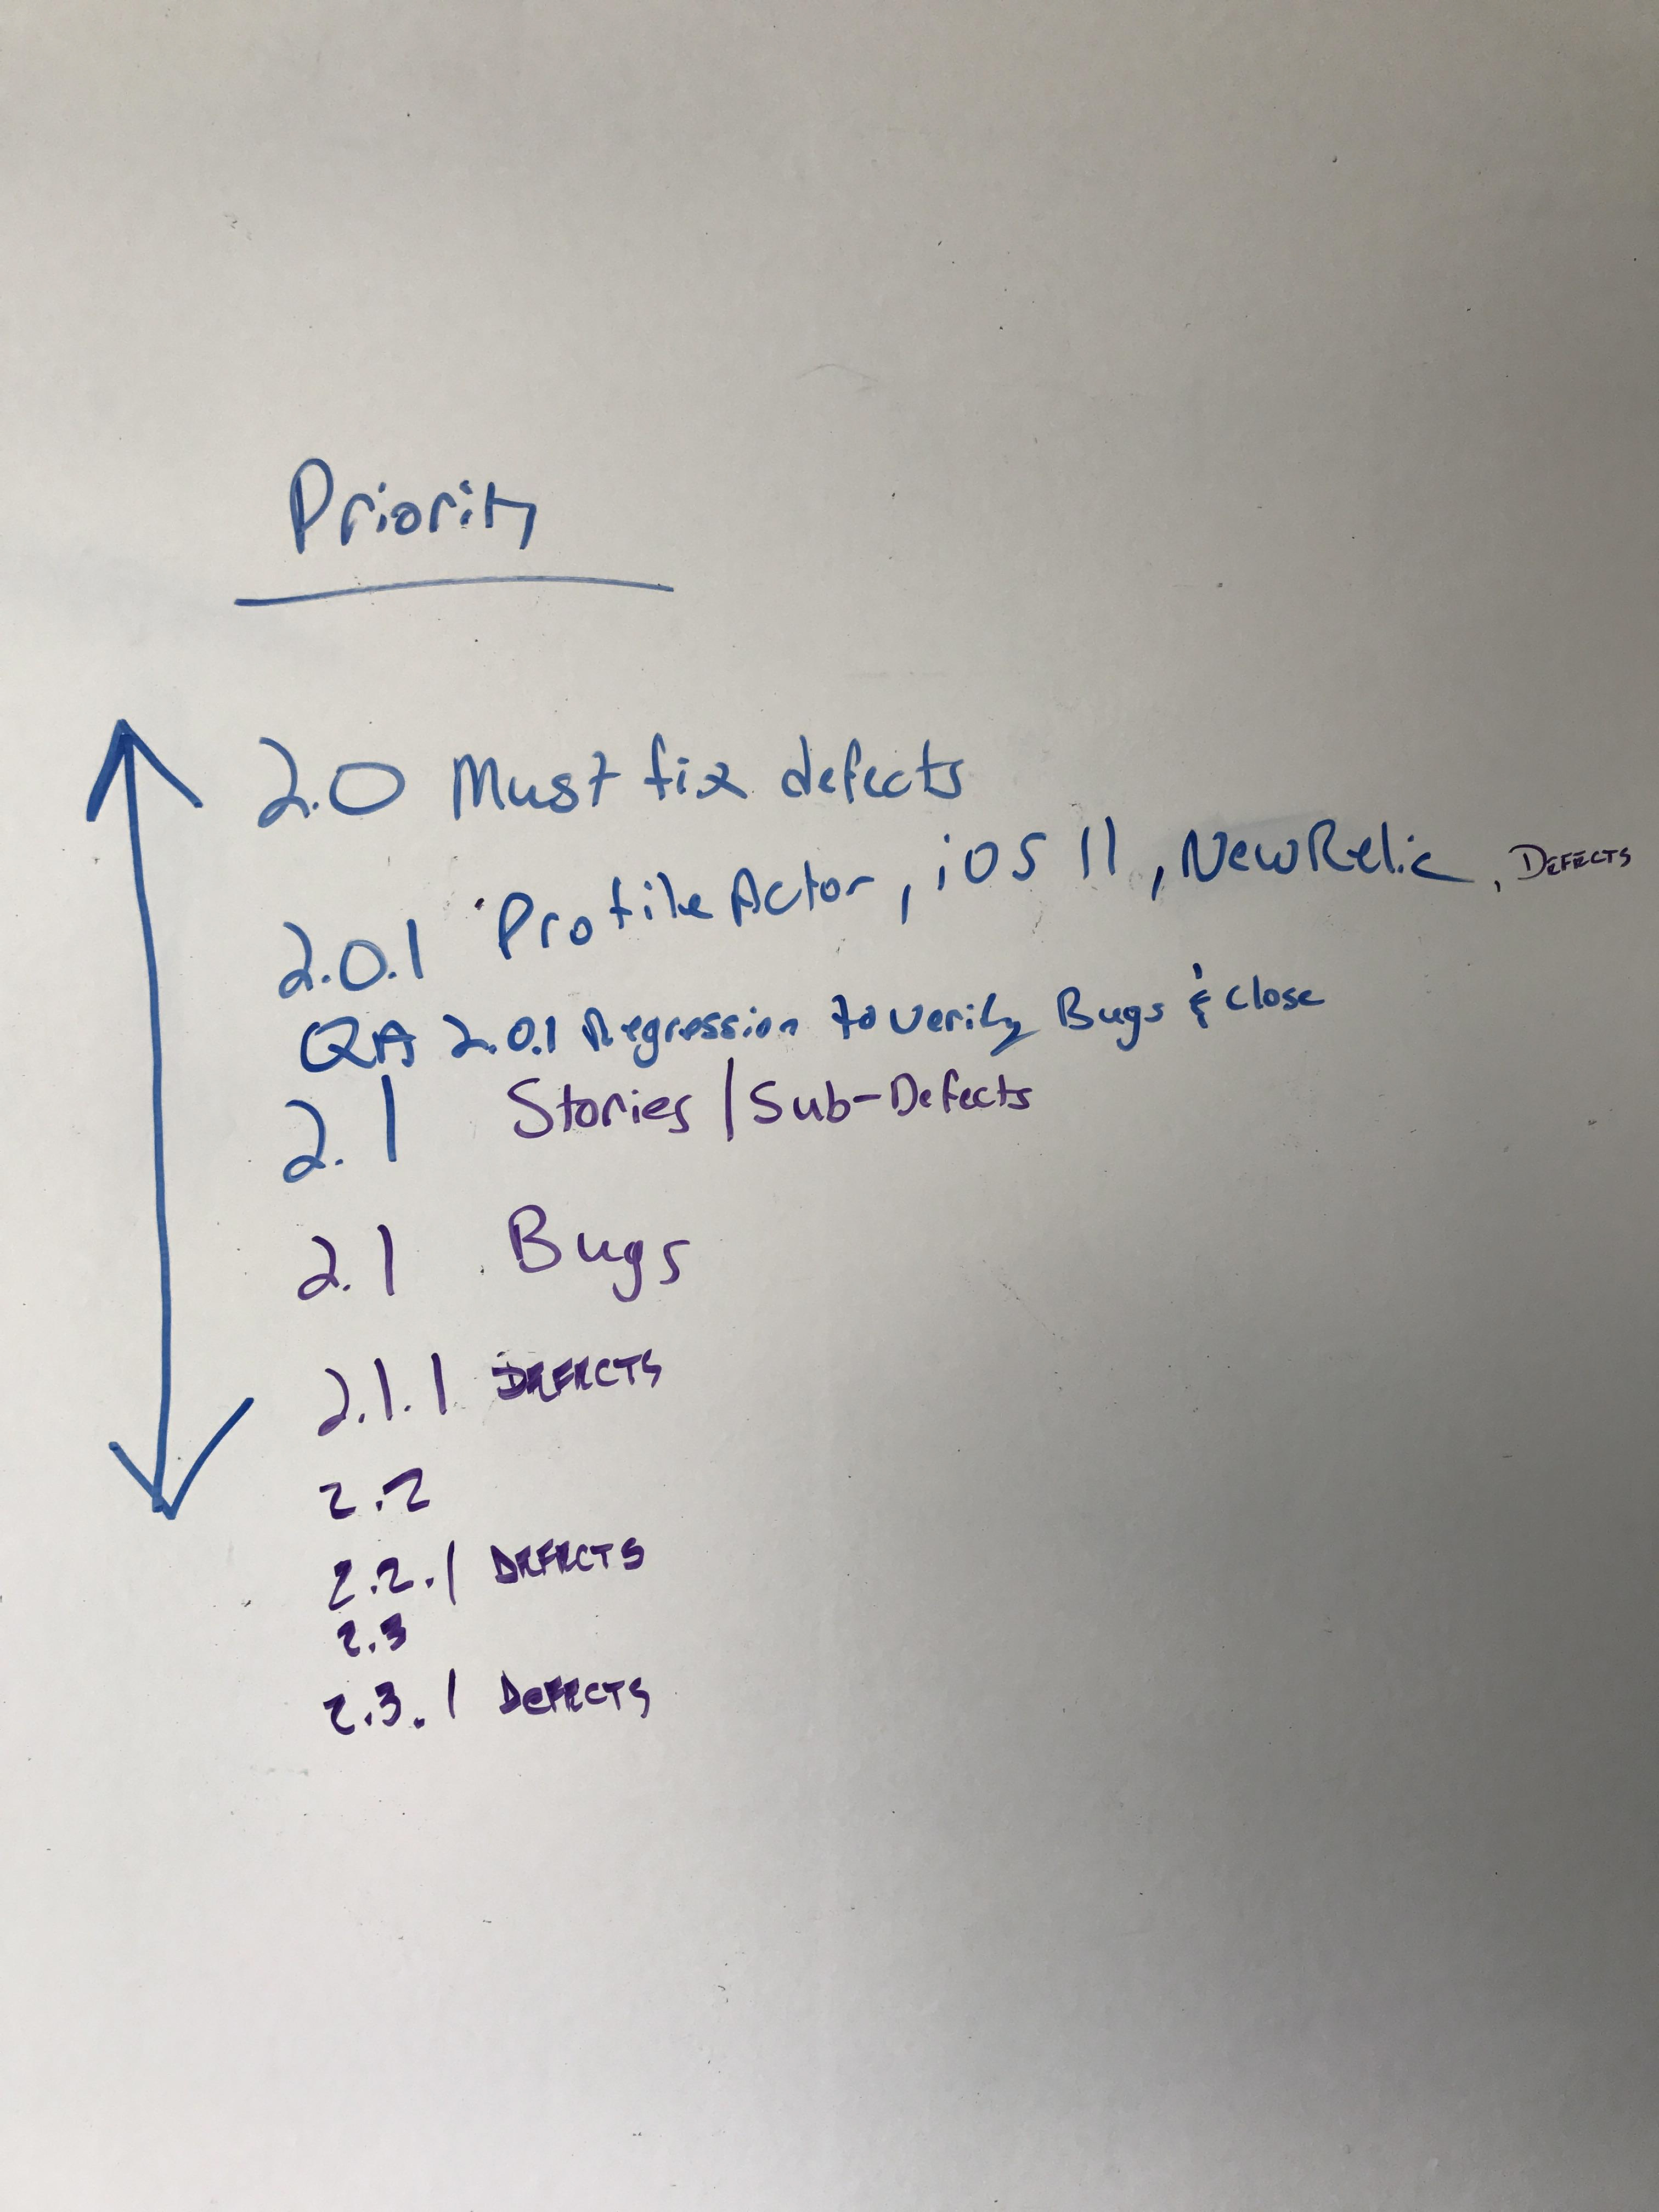 Priority
2.0 Must fix defects
2.0.1 Profile Actor, iOS 11, NewRelic, DEFECTS
QA 2.0.1 Regression to verify Bugs & close
2.1 Stories / Sub-Defects
2.1 Bugs
2.1.1 DEFECTS
2.2
2.2.1 DEFECTS
2.3
2.3.1 DEFECTS